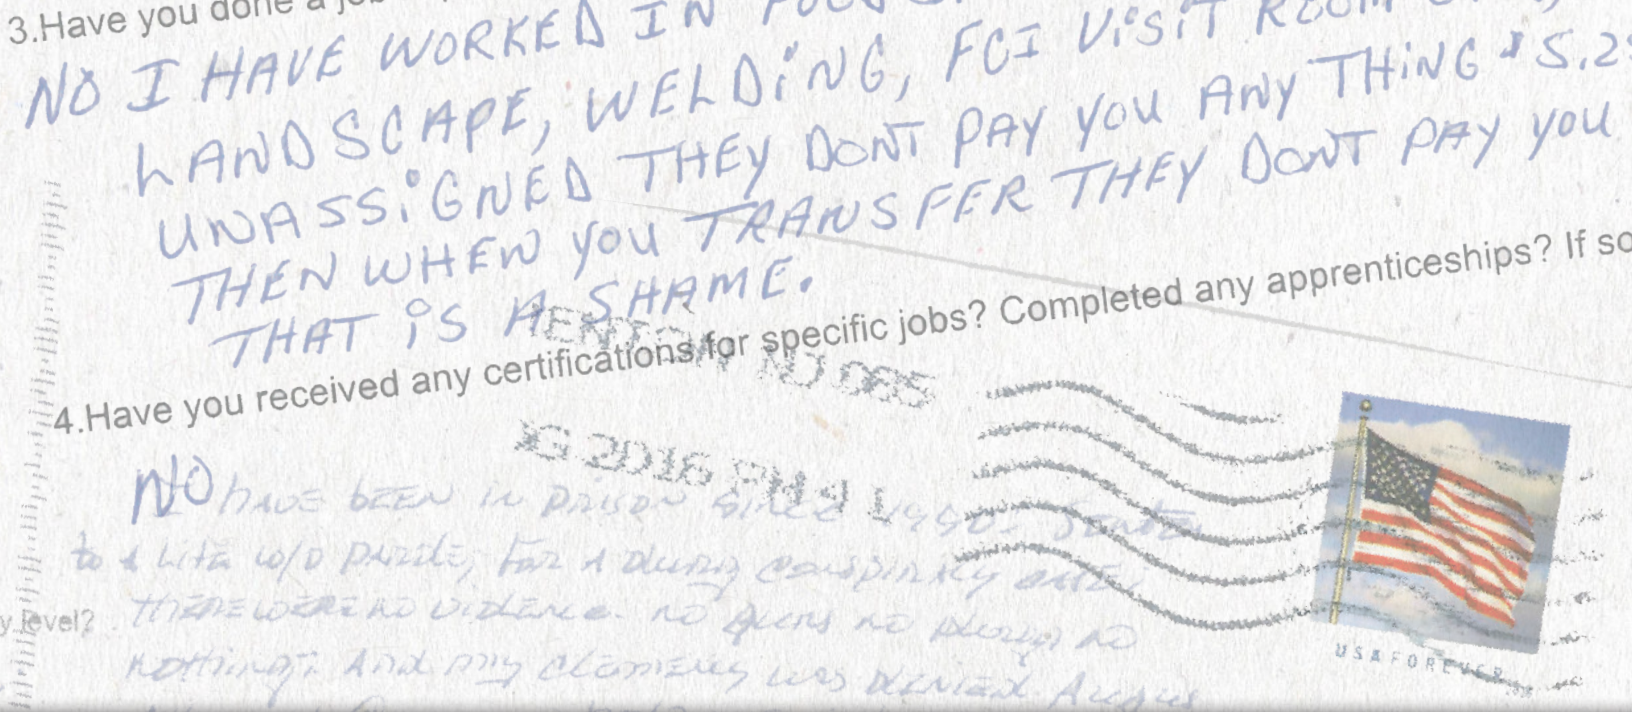 3.Have you done a
NO I HAVE WORKED IN
LANDSCAPE, WELDING, FCI VISIT ROOM
UNASSIGNED THEY DONT PAY YOU ANY THING $5.25
THEN WHEN YOU TRANSFER THEY DONT PAY YOU
THAT IS A SHAME.
4.Have you received any certifications for specific jobs? Completed any apprenticeships? If so
NO 085
2016 PM 9 L
NO
have been in prison since 1990.
to a Life w/o parole, for a drug conspiracy
y level?
there were no violence. no guns no drugs no
nothing. And my clemency was denied Augus
USA FOREVER